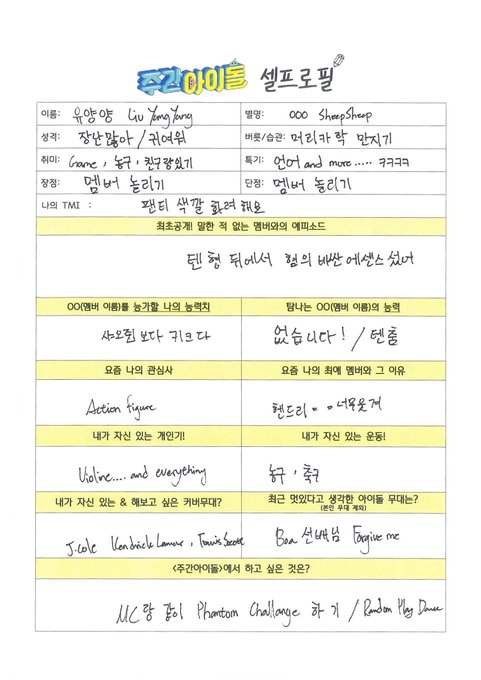 주간아이돌 셀프로필
이름: 유양양 Liu YangYang 별명: OOO SheepSheep
성격: 장난많아 / 귀여워 버릇/습관: 머리카락 만지기
취미: Game, 농구, 친구랑있기 특기: 언어 and more..... ㅋㅋㅋㅋ
장점: 멤버 놀리기 단점: 멤버 놀리기
나의 TMI : 팬티 색깔 화려해요
최초공개! 말한 적 없는 멤버와의 에피소드
텐 형 뒤에서 형의 비싼 에센스 썼어
OO(멤버 이름)를 능가할 나의 능력치 탐나는 OO(멤버 이름)의 능력
샤오쥔보다 키크다 없습니다! / 텐춤
요즘 나의 관심사 요즘 나의 최애 멤버와 그 이유
Action figure 헨드리 = = 너무웃겨
내가 자신 있는 개인기! 내가 자신 있는 운동!
Violine.... and everything 농구, 축구
내가 자신 있는 & 해보고 싶은 커버무대? 최근 멋있다고 생각한 아이돌 무대는?
(본인 무대 제외)
J.cole Kendrick Lamar, Travis Scott Boa 선배님 Forgive me
<주간아이돌>에서 하고 싶은 것은?
MC랑 같이 Phantom Challange 하기 / Random Play Dance